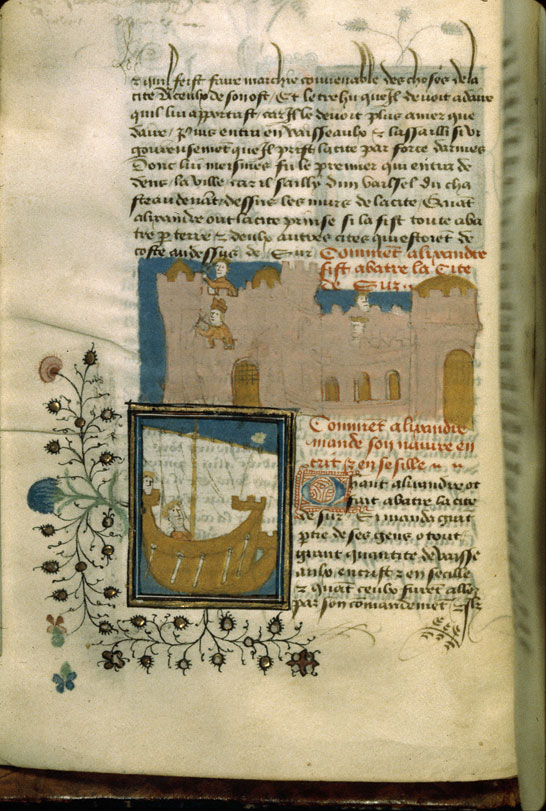 & quil feist faire marchie convenable des choses de la
cite & ceulx de son ost / Et le trehu que Il devoit a daire
quil lui apportast / car Il le devoit plus amer que
daire / Puis entra en vaisseaulx & lassailli si vi
goureusemet que Il prist la cite par force darmes
Donc lui meismes fu le premier qui entra de
dens la ville car il sailly dun vaissel du cha
steau de nat dessus les murs de la cite / Quat
alixandre out la cite prinse si la fist toute aba
tre p terre & deulx autres cites qui estoiet de
coste au dessus de Sur
Commet alixandre
fist abatre la Cite
de Sur
Commet alixandre
mande son navire en
trit & en sesille
Quant alixandre ot
fait abatre la cite
de sur Si manda grat
ptie de ses gens o tout
grant quantite de vaisse
aulx en trist & en secille
& quat ceulx furet allez
par son comandemet